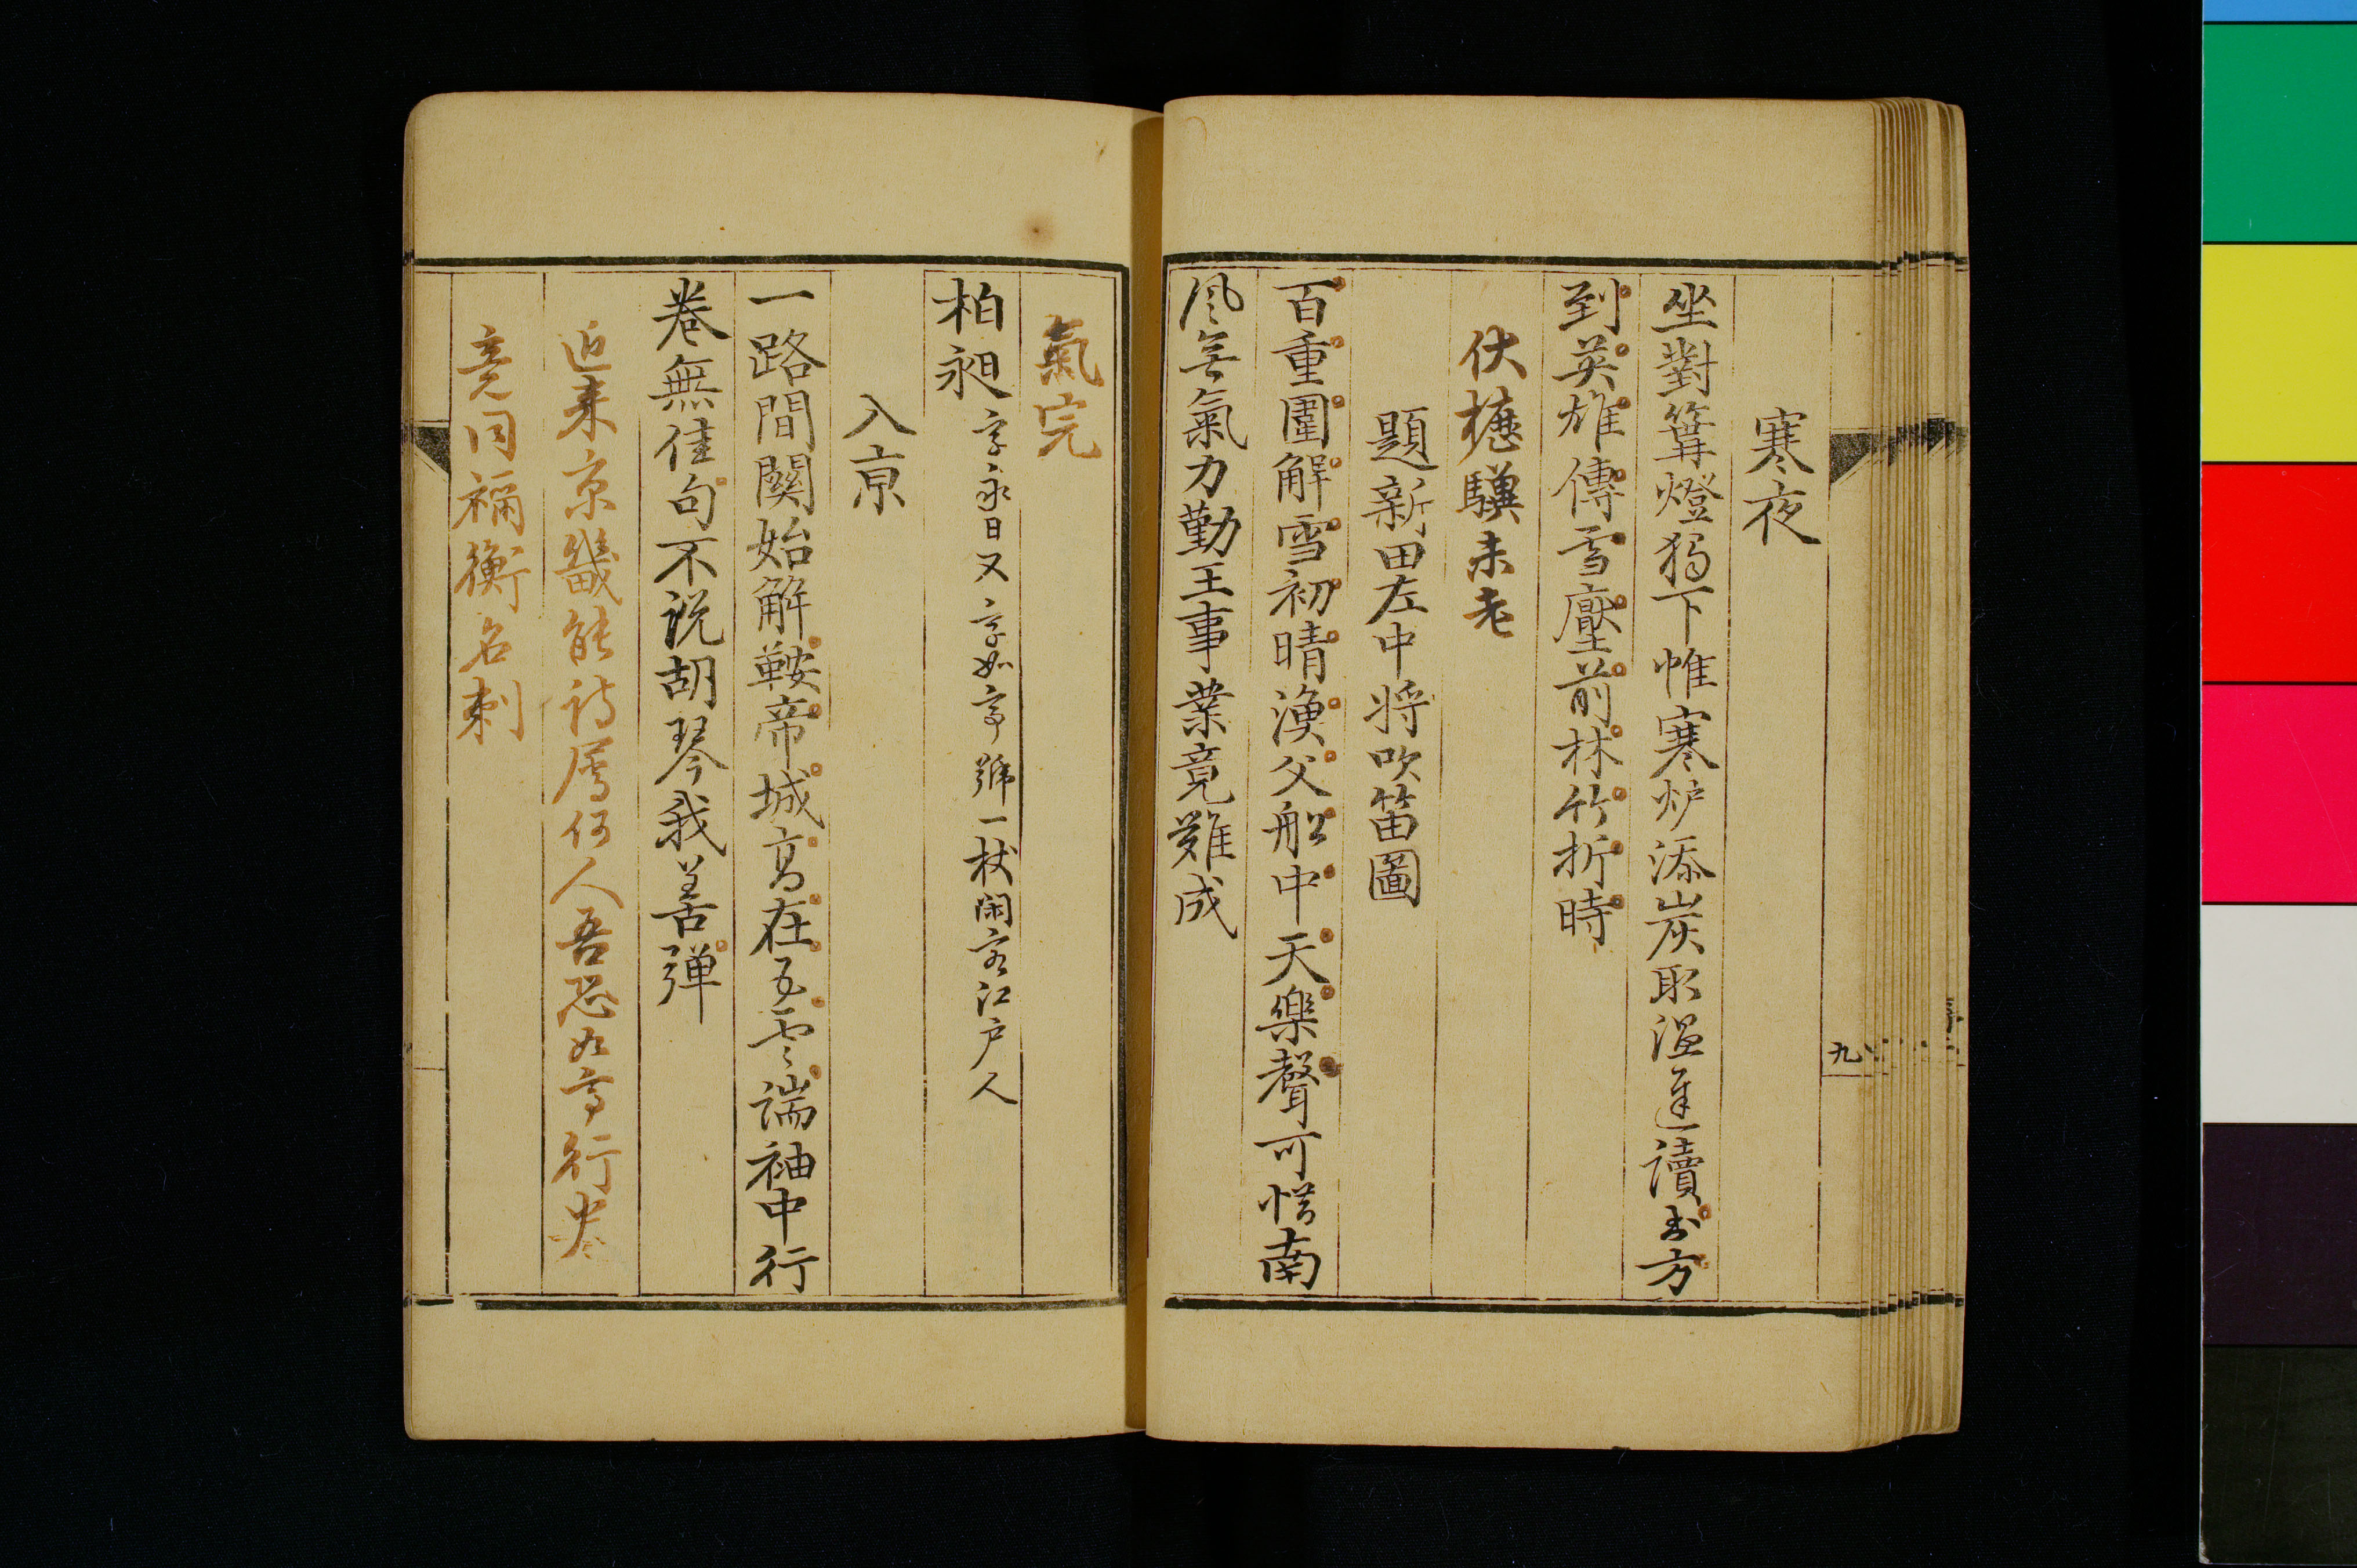 寒夜
坐對篝燈獨下帷寒炉添炭取溫遲讀書方
到英雄傳雪壓前林竹折時
伏櫪驥未老
題新田左中将吹笛圖
百重圍解雪初晴漁父船中天樂聲可惜南
风無氣力勤王事業竟難成
九
氣完
柏昶字永日又字如亭號一杖閑客江户人
入京
一路間關始解鞍帝城高在五雲端袖中行
卷無佳句不说胡琴我善弹
近来京畿能詩属何人吾恐如亭行卷
竟同禰衡名刺